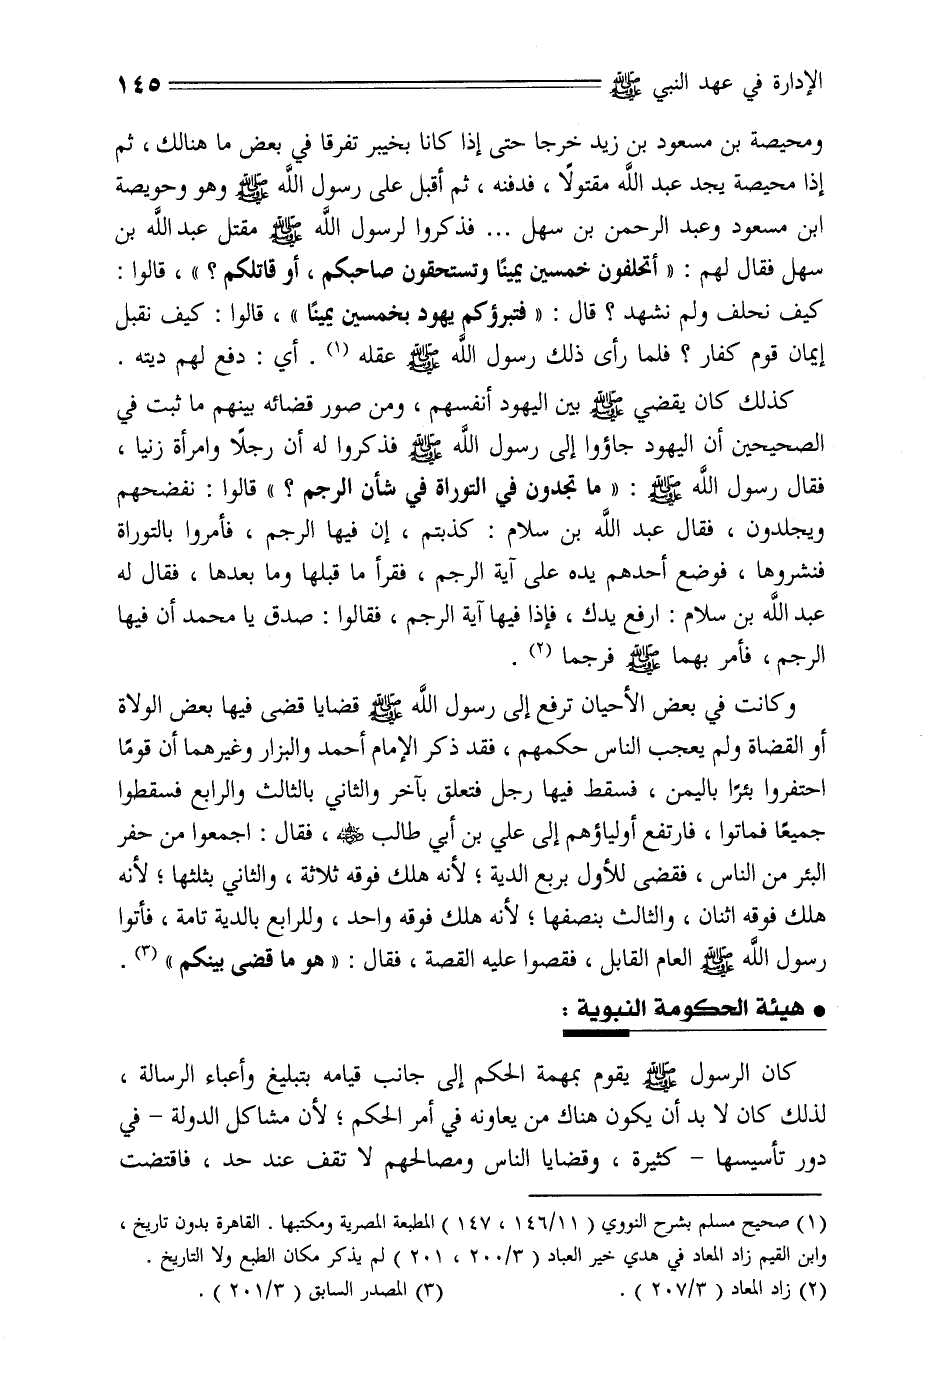 الإدارة في عهد النبي ﷺ ١٤٥
ومحيصة بن مسعود بن زيد خرجا حتى إذا كانا بخيبر تفرقا في بعض ما هنالك ، ثم
إذا محيصة يجد عبد اللَّه مقتولًا ، فدفنه ، ثم أقبل على رسول اللَّه ﷺ وهو وحويصة
ابن مسعود وعبد الرحمن بن سهل ... فذكروا لرسول اللَّه ﷺ مقتل عبد اللَّه بن
سهل فقال لهم : « أتحلفون خمسين يمينًا وتستحقون صاحبكم ، أو قاتلكم ؟ » ، قالوا :
كيف نحلف ولم نشهد ؟ قال : « فتبرؤكم يهود بخمسين يمينًا » ، قالوا : كيف نقبل
إيمان قوم كفار ؟ فلما رأى ذلك رسول اللَّه ﷺ عقله (١) . أي : دفع لهم ديته .
كذلك كان يقضي ﷺ بين اليهود أنفسهم ، ومن صور قضائه بينهم ما ثبت في
الصحيحين أن اليهود جاؤوا إلى رسول اللَّه ﷺ فذكروا له أن رجلًا وامرأة زنيا ،
فقال رسول اللَّه ﷺ : « ما تجدون في التوراة في شأن الرجم ؟ » قالوا : نفضحهم
ويجلدون ، فقال عبد اللَّه بن سلام : كذبتم ، إن فيها الرجم ، فأمروا بالتوراة
فنشروها ، فوضع أحدهم يده على آية الرجم ، فقرأ ما قبلها وما بعدها ، فقال له
عبد اللَّه بن سلام : ارفع يدك ، فإذا فيها آية الرجم ، فقالوا : صدق يا محمد أن فيها
الرجم ، فأمر بهما ﷺ فرجما (٢) .
وكانت في بعض الأحيان ترفع إلى رسول اللَّه ﷺ قضايا قضى فيها بعض الولاة
أو القضاة ولم يعجب الناس حكمهم ، فقد ذكر الإمام أحمد والبزار وغيرهما أن قومًا
احتفروا بئرًا باليمن ، فسقط فيها رجل فتعلق بآخر والثاني بالثالث والرابع فسقطوا
جميعًا فماتوا ، فارتفع أولياؤهم إلى علي بن أبي طالب ﵁ ، فقال : اجمعوا من حفر
البئر من الناس ، فقضى للأول بربع الدية ؛ لأنه هلك فوقه ثلاثة ، والثاني بثلثها ؛ لأنه
هلك فوقه اثنان ، والثالث بنصفها ؛ لأنه هلك فوقه واحد ، وللرابع بالدية تامة ، فأتوا
رسول اللَّه ﷺ العام القابل ، فقصوا عليه القصة ، فقال : « هو ما قضى بينكم » (٣) .
● هيئة الحكومة النبوية :
كان الرسول ﷺ يقوم بمهمة الحكم إلى جانب قيامه بتبليغ وأعباء الرسالة ،
لذلك كان لا بد أن يكون هناك من يعاونه في أمر الحكم ؛ لأن مشاكل الدولة – في
دور تأسيسها – كثيرة ، وقضايا الناس ومصالحهم لا تقف عند حد ، فاقتضت
(١) صحيح مسلم بشرح النووي ( ١٤٦/١١ ، ١٤٧ ) المطبعة المصرية ومكتبها . القاهرة بدون تاريخ ،
وابن القيم زاد المعاد في هدي خير العباد ( ٢٠٠/٣ ، ٢٠١ ) لم يذكر مكان الطبع ولا التاريخ .
(٢) زاد المعاد ( ٢٠٧/٣ ) . (٣) المصدر السابق ( ٢٠١/٣ ) .